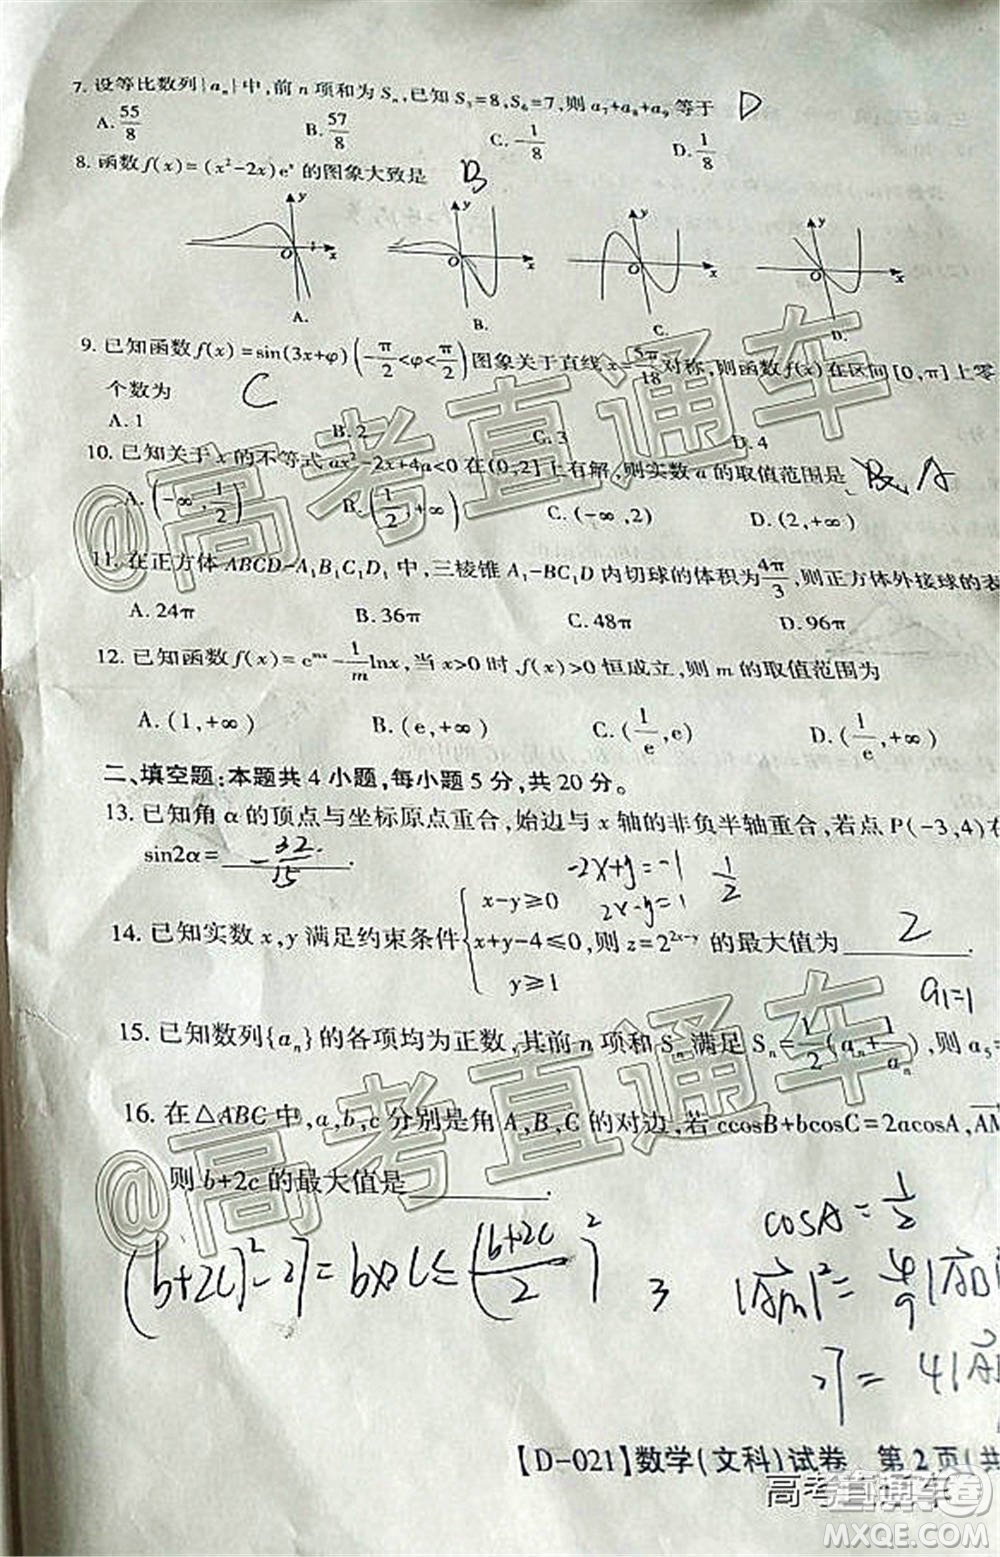 7. 设等比数列{aₙ}中,前 n 项和为 Sₙ,已知 S₃=8,S₆=7,则 a₇+a₈+a₉等于 D
A. 55/8 B. 57/8 C. -1/8 D. 1/8
8. 函数 f(x)=(x²-2x)eˣ 的图象大致是 B
y y y y
O x O x O x O x
A. B. C. D.
9. 已知函数 f(x)=sin(3x+φ)(-π/2<φ<π/2)图象关于直线 x=5π/18对称,则函数f(x)在区间[0,π]上零
个数为 C
A. 1 B. 2 C. 3 D. 4
10. 已知关于 x 的不等式 ax²-2x+4a<0 在(0,2]上有解,则实数 a 的取值范围是 A
A. (-∞,1/2) B. (1/2,+∞) C. (-∞,2) D. (2,+∞)
11. 在正方体 ABCD-A₁B₁C₁D₁ 中,三棱锥 A₁-BC₁D 内切球的体积为4π/3,则正方体外接球的表
A. 24π B. 36π C. 48π D. 96π
12. 已知函数 f(x)=eᵐˣ-1/m lnx,当 x>0 时 f(x)>0 恒成立,则 m 的取值范围为
A. (1,+∞) B. (e,+∞) C. (1/e,e) D. (1/e,+∞)
二、填空题:本题共 4 小题,每小题 5 分,共 20 分。
13. 已知角 α 的顶点与坐标原点重合,始边与 x 轴的非负半轴重合,若点 P(-3,4)在
sin2α= -32/15 .
-2x+y=-1 1/2
2x-y=1
14. 已知实数 x,y 满足约束条件{x-y≥0 x+y-4≤0 y≥1,则 z=2²ˣ⁻ʸ 的最大值为 2 .
a₁=1
15. 已知数列{aₙ}的各项均为正数,其前 n 项和 Sₙ 满足 Sₙ=1/2(aₙ+1/aₙ),则 a₅=
16. 在△ABC 中,a,b,c 分别是角 A,B,C 的对边,若 ccosB+bcosC=2acosA,AM
则 b+2c 的最大值是 .
cosA=1/2
(b+2c)²-27=b×2c≤((b+2c)/2)² 3 |AM|²=4/9|AB|²
27=4|A
【D-021】数学(文科)试卷 第 2 页(共
高考直通车
@高考直通车
@高考直通车
答案圈
MXQE.COM